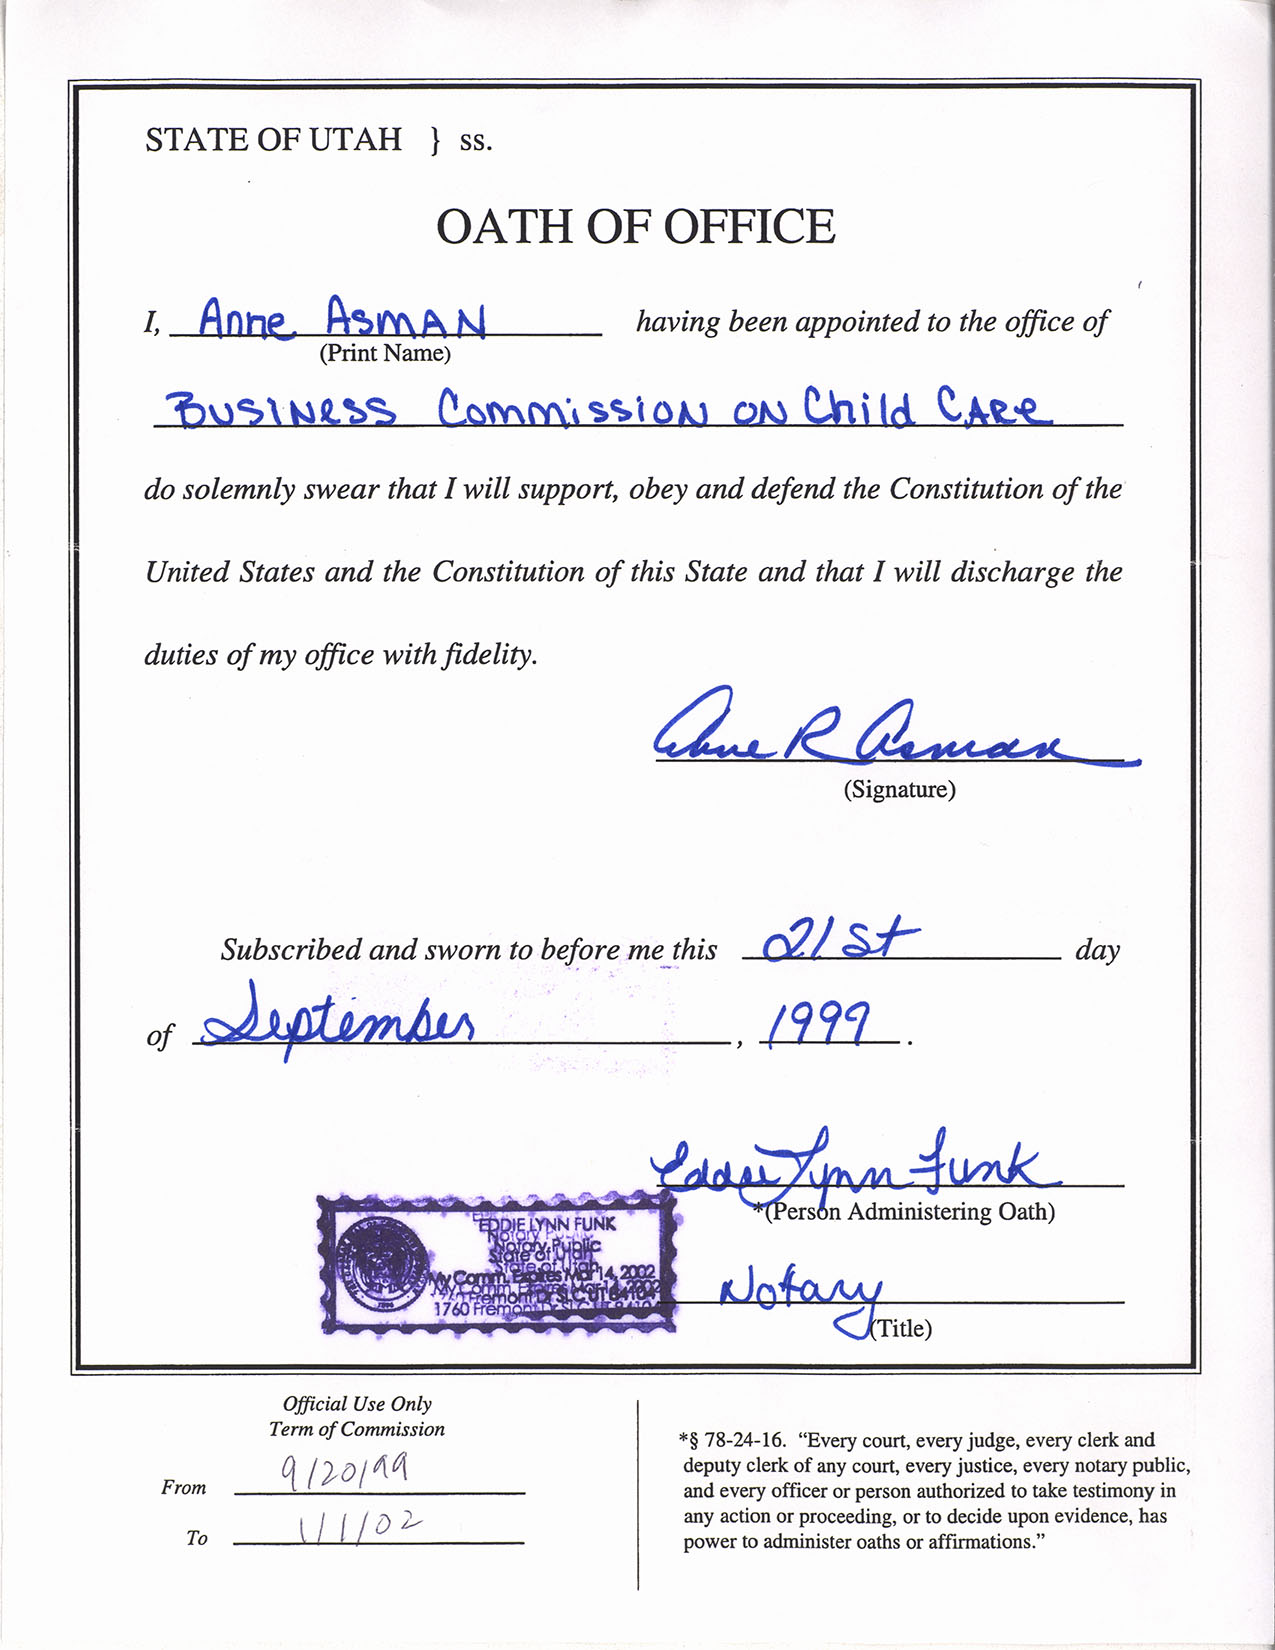 STATE OF UTAH } ss.
OATH OF OFFICE
I, Anne Asman having been appointed to the office of
(Print Name)
Business Commission on Child Care
do solemnly swear that I will support, obey and defend the Constitution of the
United States and the Constitution of this State and that I will discharge the
duties of my office with fidelity.
Anne R Asman
(Signature)
Subscribed and sworn to before me this 21st day
of September, 1999.
Eddie Lynn Funk
*(Person Administering Oath)
EDDIE LYNN FUNK
Notary Public
State of Utah
My Comm. Expires Mar 14, 2002
1760 Fremont Dr SLC UT 84104
Notary
(Title)
Official Use Only
Term of Commission
From 9/20/99
To 1/1/02
*§ 78-24-16. “Every court, every judge, every clerk and
deputy clerk of any court, every justice, every notary public,
and every officer or person authorized to take testimony in
any action or proceeding, or to decide upon evidence, has
power to administer oaths or affirmations.”